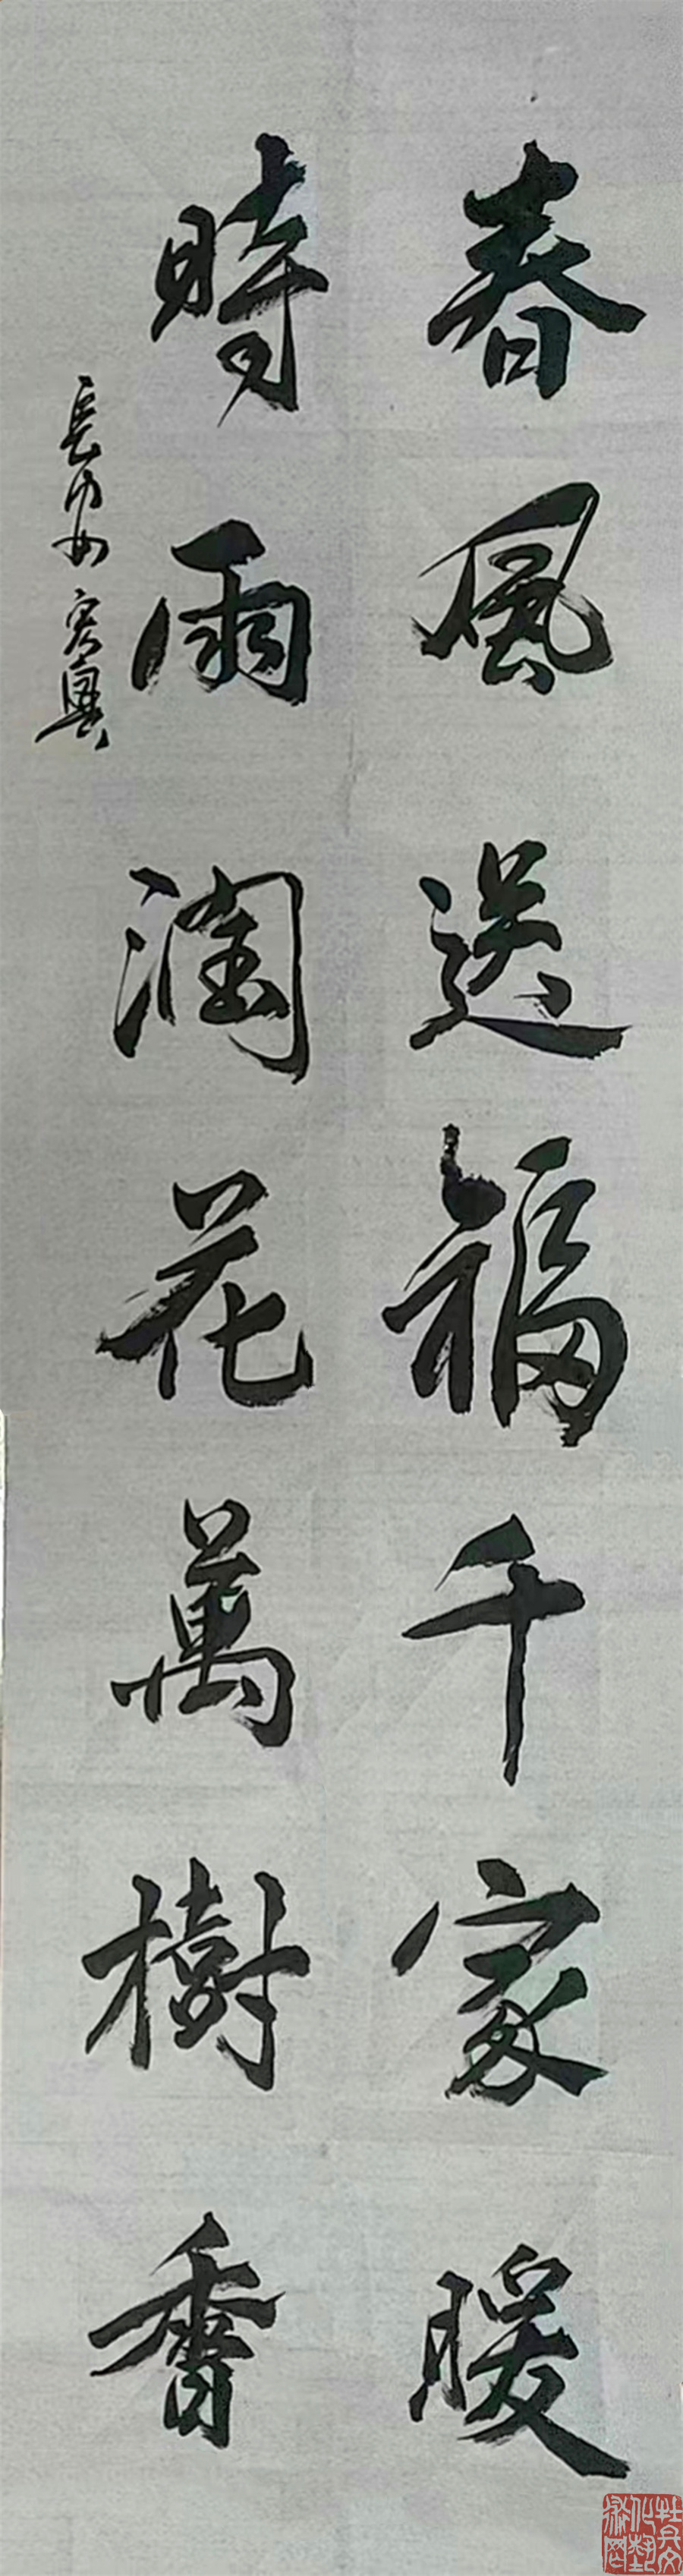 春風送福千家暖
時雨潤花萬樹香
長安